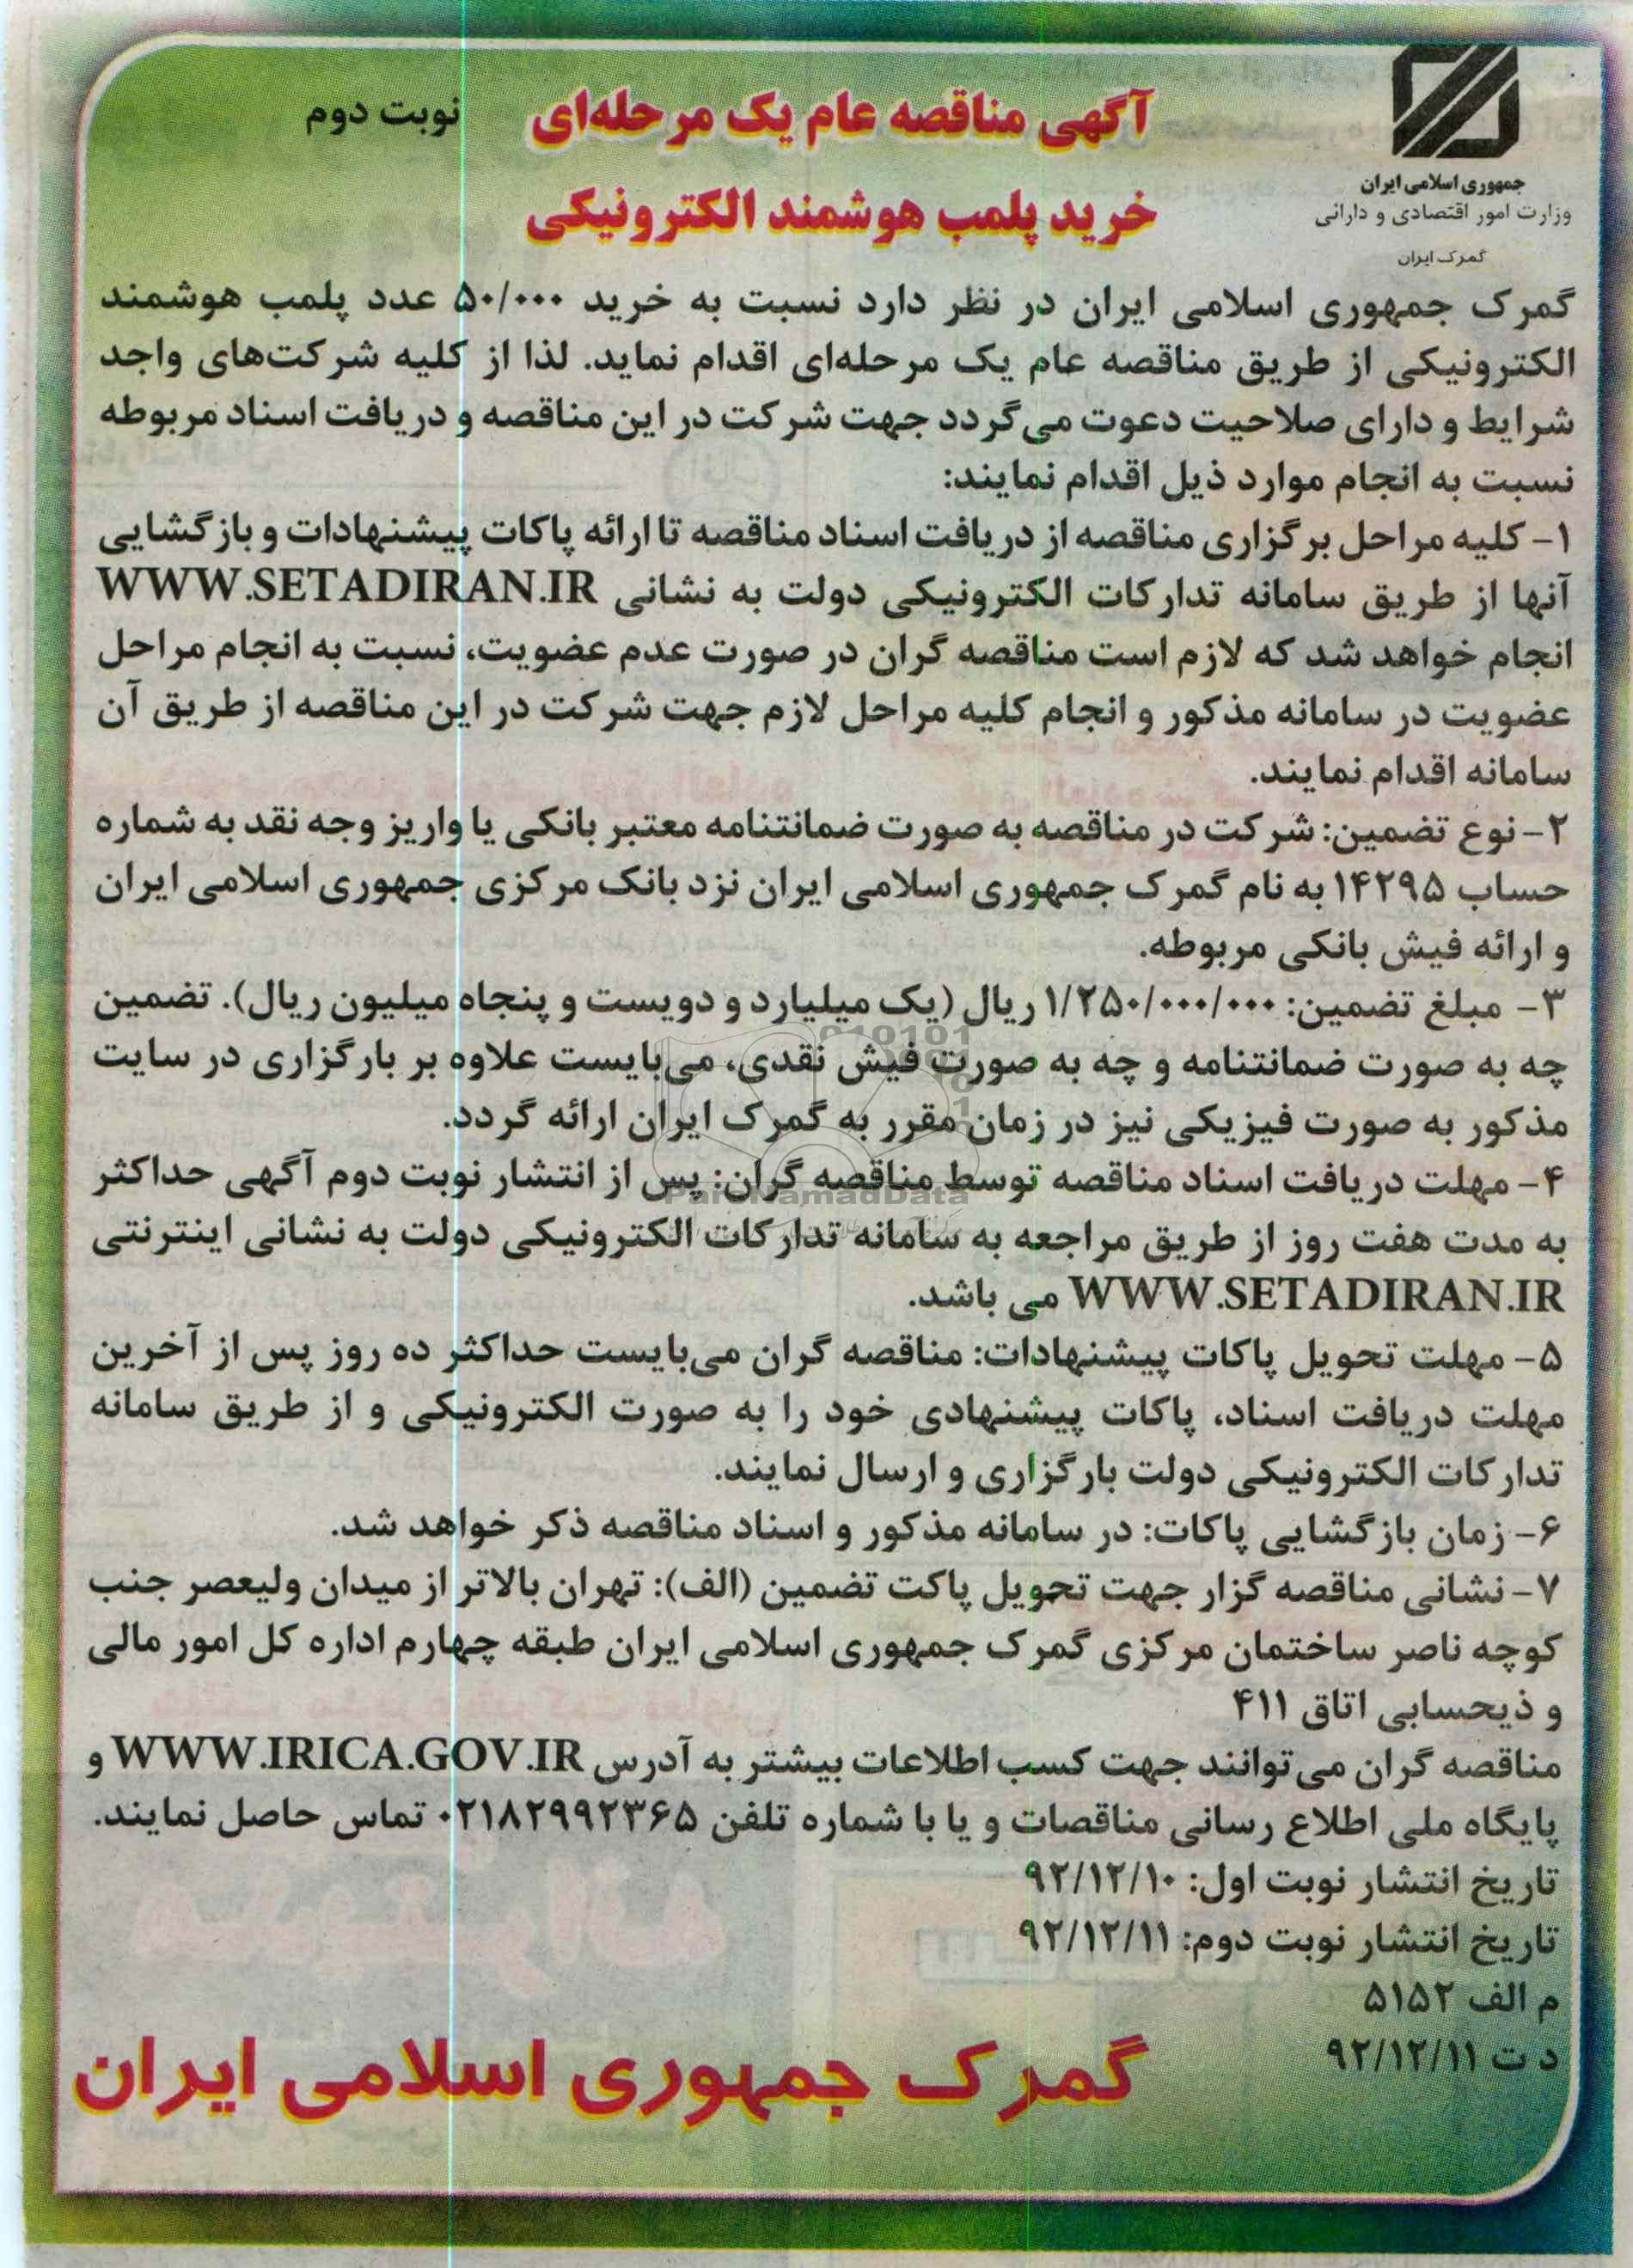 جمهوری اسلامی ایران
وزارت امور اقتصادی و دارائی
گمرک ایران
آگهی مناقصه عام یک مرحله‌ای
نوبت دوم
خرید پلمب هوشمند الکترونیکی
گمرک جمهوری اسلامی ایران در نظر دارد نسبت به خرید ۵۰/۰۰۰ عدد پلمب هوشمند
الکترونیکی از طریق مناقصه عام یک مرحله‌ای اقدام نماید. لذا از کلیه شرکت‌های واجد
شرایط و دارای صلاحیت دعوت می‌گردد جهت شرکت در این مناقصه و دریافت اسناد مربوطه
نسبت به انجام موارد ذیل اقدام نمایند:
۱- کلیه مراحل برگزاری مناقصه از دریافت اسناد مناقصه تا ارائه پاکات پیشنهادات و بازگشایی
آنها از طریق سامانه تدارکات الکترونیکی دولت به نشانی WWW.SETADIRAN.IR
انجام خواهد شد که لازم است مناقصه گران در صورت عدم عضویت، نسبت به انجام مراحل
عضویت در سامانه مذکور و انجام کلیه مراحل لازم جهت شرکت در این مناقصه از طریق آن
سامانه اقدام نمایند.
۲- نوع تضمین: شرکت در مناقصه به صورت ضمانتنامه معتبر بانکی یا واریز وجه نقد به شماره
حساب ۱۴۲۹۵ به نام گمرک جمهوری اسلامی ایران نزد بانک مرکزی جمهوری اسلامی ایران
و ارائه فیش بانکی مربوطه.
۳- مبلغ تضمین: ۱/۲۵۰/۰۰۰/۰۰۰ ریال (یک میلیارد و دویست و پنجاه میلیون ریال). تضمین
چه به صورت ضمانتنامه و چه به صورت فیش نقدی، می‌بایست علاوه بر بارگزاری در سایت
مذکور به صورت فیزیکی نیز در زمان مقرر به گمرک ایران ارائه گردد.
۴- مهلت دریافت اسناد مناقصه توسط مناقصه گران: پس از انتشار نوبت دوم آگهی حداکثر
به مدت هفت روز از طریق مراجعه به سامانه تدارکات الکترونیکی دولت به نشانی اینترنتی
WWW.SETADIRAN.IR می باشد.
۵- مهلت تحویل پاکات پیشنهادات: مناقصه گران می‌بایست حداکثر ده روز پس از آخرین
مهلت دریافت اسناد، پاکات پیشنهادی خود را به صورت الکترونیکی و از طریق سامانه
تدارکات الکترونیکی دولت بارگزاری و ارسال نمایند.
۶- زمان بازگشایی پاکات: در سامانه مذکور و اسناد مناقصه ذکر خواهد شد.
۷- نشانی مناقصه گزار جهت تحویل پاکت تضمین (الف): تهران بالاتر از میدان ولیعصر جنب
کوچه ناصر ساختمان مرکزی گمرک جمهوری اسلامی ایران طبقه چهارم اداره کل امور مالی
و ذیحسابی اتاق ۴۱۱
مناقصه گران می‌توانند جهت کسب اطلاعات بیشتر به آدرس WWW.IRICA.GOV.IR و
پایگاه ملی اطلاع رسانی مناقصات و یا با شماره تلفن ۰۲۱۸۲۹۹۲۳۶۵ تماس حاصل نمایند.
تاریخ انتشار نوبت اول: ۹۲/۱۲/۱۰
تاریخ انتشار نوبت دوم: ۹۲/۱۲/۱۱
م الف ۵۱۵۲
د ت ۹۲/۱۲/۱۱
گمرک جمهوری اسلامی ایران
ParsNamadData